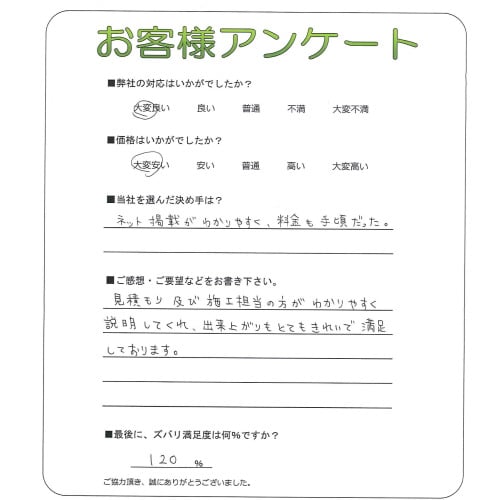 お客様アンケート
■弊社の対応はいかがでしたか？
大変良い 良い 普通 不満 大変不満
■価格はいかがでしたか？
大変安い 安い 普通 高い 大変高い
■当社を選んだ決め手は？
ネット掲載がわかりやすく、料金も手頃だった。
■ご感想・ご要望などをお書き下さい。
見積もり及び施工担当の方がわかりやすく
説明してくれ、出来上がりもとてもきれいで満足
しております。
■最後に、ズバリ満足度は何％ですか？
120 ％
ご協力頂き、誠にありがとうございました。